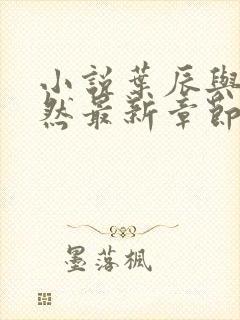 小說葉辰與
然最新章節
墨落楓